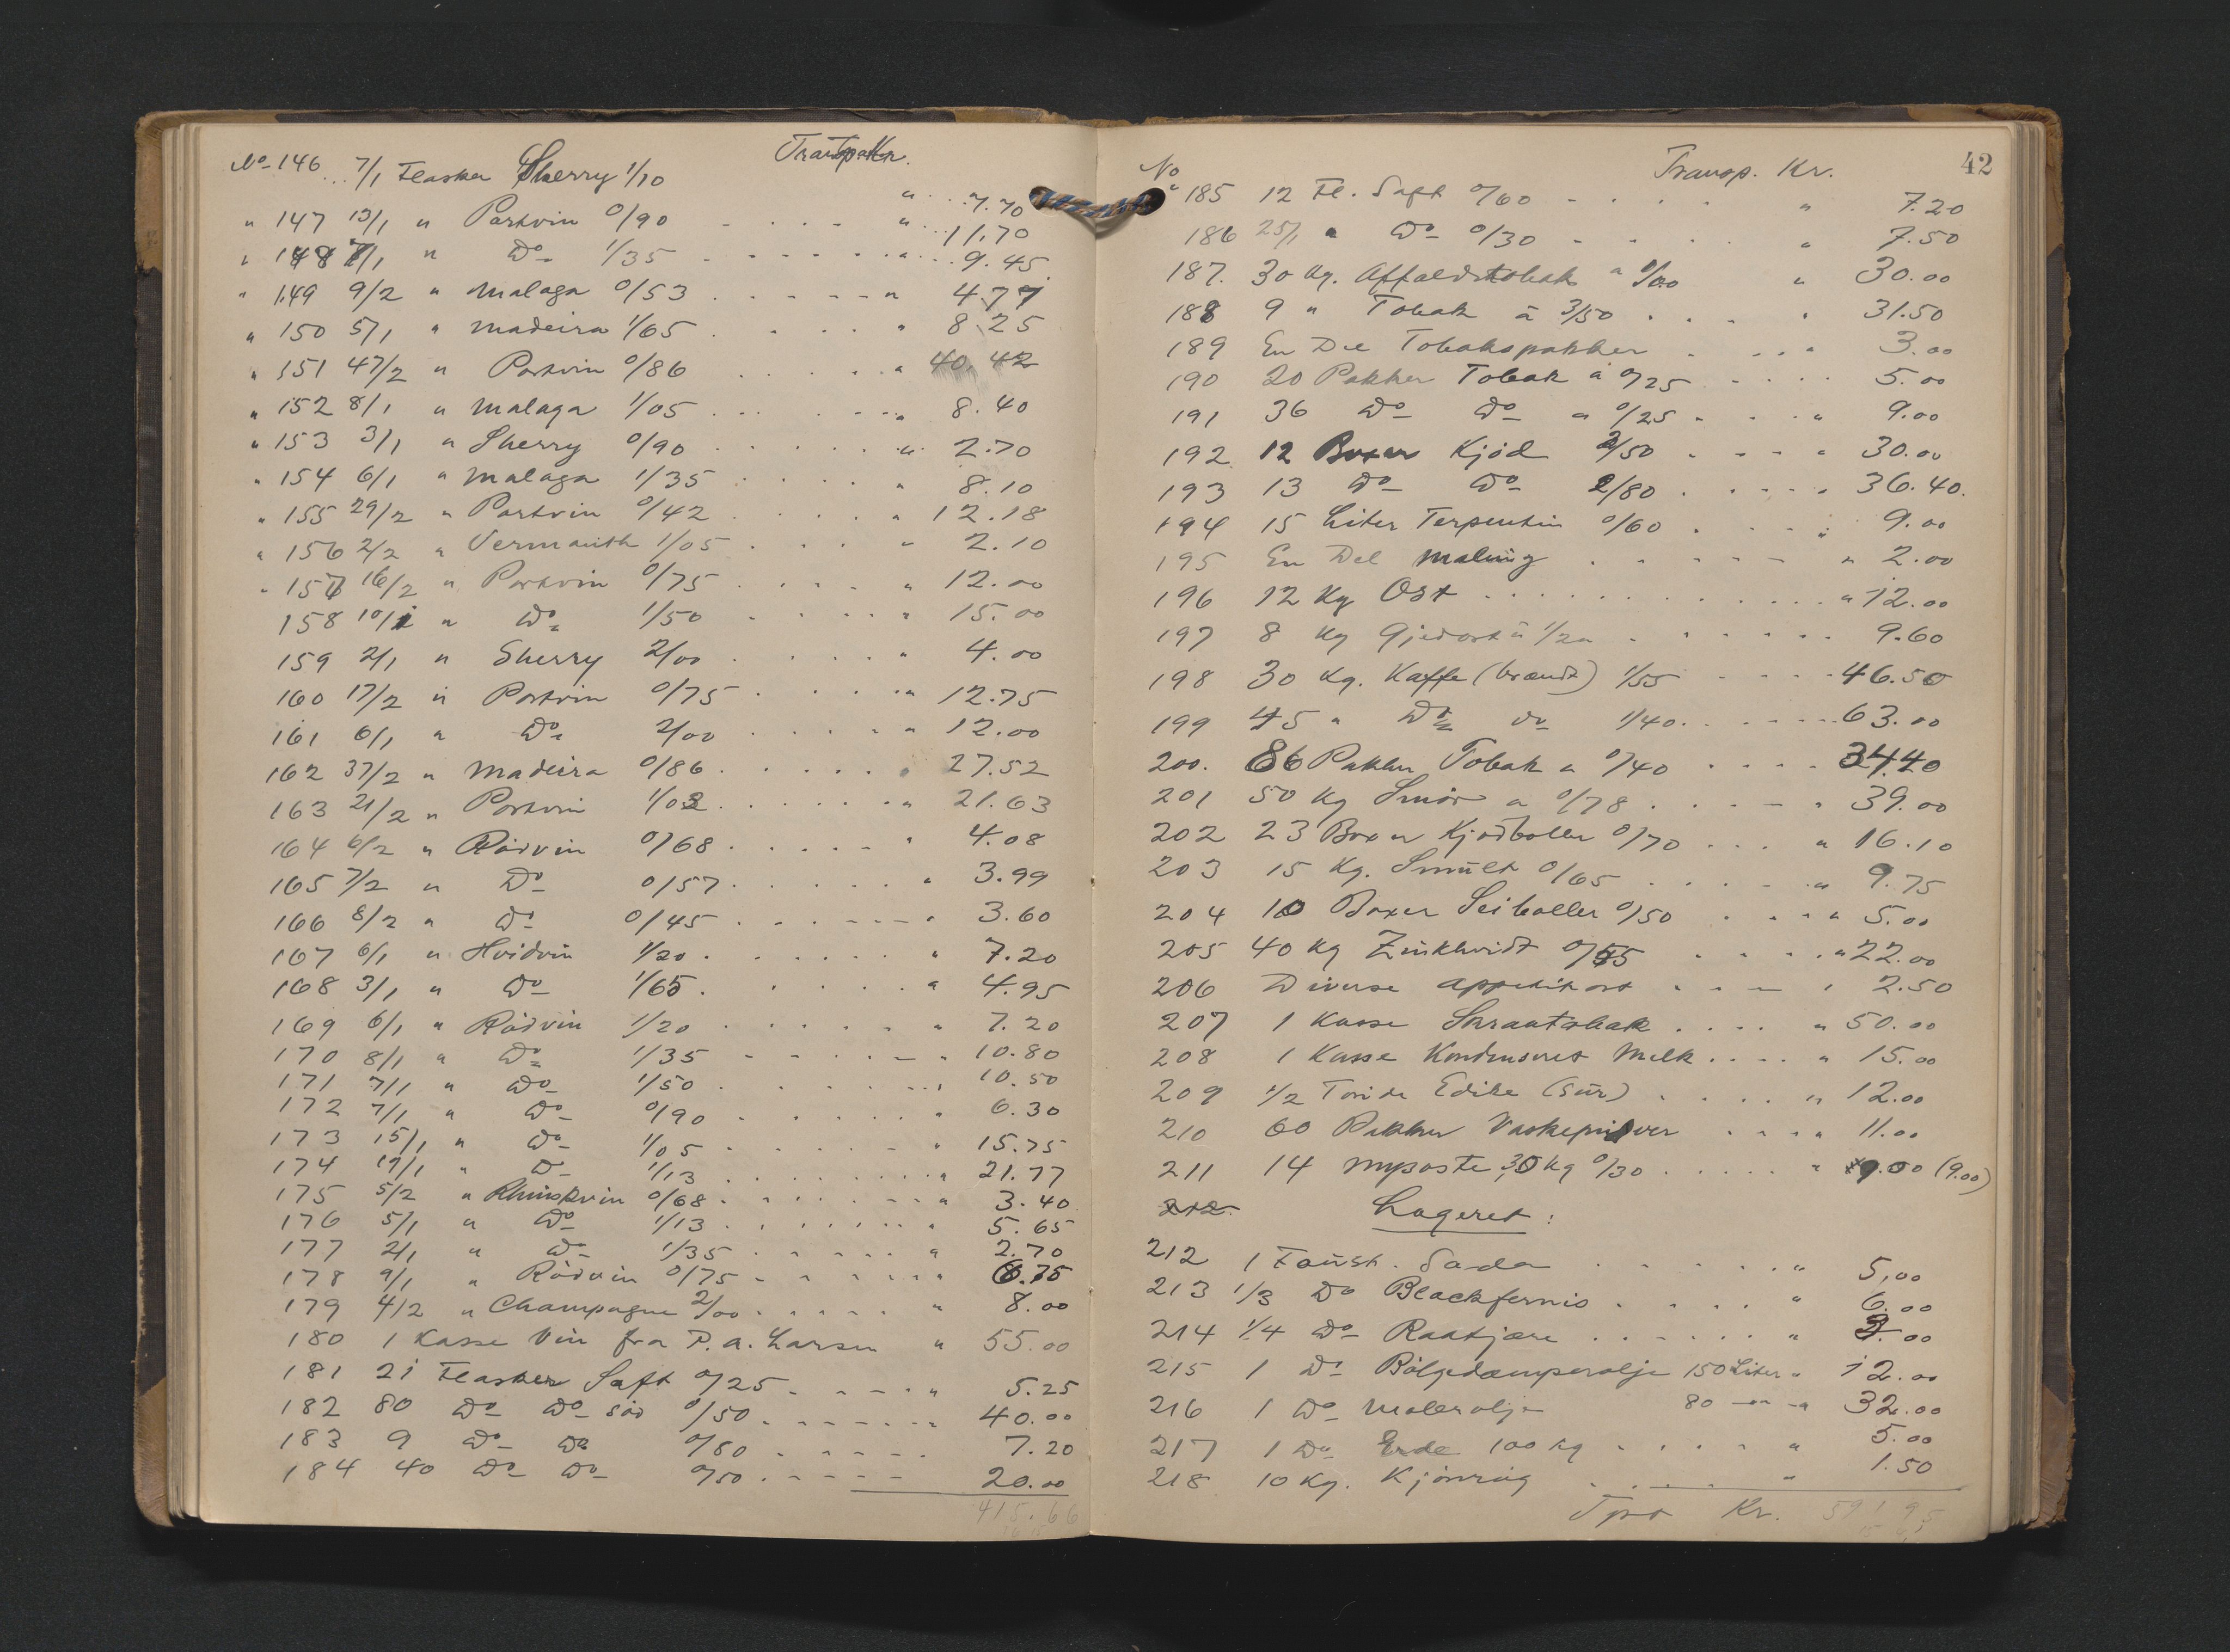 Transp. Kr.
No 146 7/1 Flasker Sherry 1/10 " 7.70
" 147 13/1 " Portvin 0/90 " 11.70
" 148 7/1 " Do 1/35 " 9.45
" 149 9/2 " Malaga 0/53 " 4.77
" 150 5/1 " Madeira 1/65 " 8.25
" 151 47/2 " Portvin 0/86 " 40.42
" 152 8/1 " Malaga 1/05 " 8.40
" 153 3/1 " Sherry 0/90 " 2.70
" 154 6/1 " Malaga 1/35 " 8.10
" 155 29/2 " Portvin 0/42 " 12.18
" 156 2/2 " Vermouth 1/05 " 2.10
" 157 16/2 " Portvin 0/75 " 12.00
158 10/1 " Do 1/50 " 15.00
159 2/1 " Sherry 2/00 " 4.00
160 17/2 " Portvin 0/75 " 12.75
161 6/1 " Do 2/00 " 12.00
162 37/2 " Madeira 0/86 27.52
163 21/2 " Portvin 1/03 " 21.63
164 6/2 " Rödvin 0/68 " 4.08
165 7/2 " Do 0/57 " 3.99
166 8/2 " Do 0/45 " 3.60
167 6/1 " Hvidvin 1/20 " 7.20
168 3/1 " Do 1/65 " 4.95
169 6/1 " Rödvin 1/20 " 7.20
170 8/1 " Do 1/35 " 10.80
171 7/1 " Do 1/50 " 10.50
172 7/1 " Do 0/90 " 6.30
173 15/1 " Do 1/05 " 15.75
174 19/1 " Do 1/13 " 21.77
175 5/2 " Rhinskvin 0/68 " 3.40
176 5/1 " Do 1/13 " 5.65
177 2/1 " Do 1/35 " 2.70
178 9/1 " Rödvin 0/75 " 6.75
179 4/2 " Champagne 2/00 " 8.00
180 1 Kasse Vin fra P. A. Larsen " 55.00
181 21 Flasker Saft 0/25 " 5.25
182 80 Do Do söd 0/50 " 40.00
183 9 Do Do 0/80 7.20
184 40 Do Do 0/50 20.00
415.66
42
No Transp. Kr.
" 185 12 Fl. Saft 0/60 " 7.20
186 25/1 " Do 0/30 " 7.50
187. 30 Kg. Affaldstobak a 1/00 " 30.00
188 9 " Tobak à 3/50 " 31.50
189 En Del Tobakspakker " 3.00
190 20 Pakker Tobak à 0/25 5.00
191 36 Do Do a 0/25 " 9.00
192 12 Boxer Kjöd 2/50 " 30.00
193 13 Do Do 2/80 " 36.40.
194 15 Liter Terpentin 0/60 " 9.00
195 En Del Maling " 2.00
196 12 Kg Ost " 12.00
197 8 Kg Gjedost à 1/20 9.60
198 30 Kg. Kaffe (brændt) 1/55 46.50
199 45 " Do do 1/40 63.00
200. 86 Pakker Tobak a 0/40 34.40
201 50 Kg Smör a 0/78 " 39.00
202 23 Boxer Kjödboller 0/70 " 16.10
203 15 Kg. Smult 0/65 " 9.75
204 10 Boxer Seiboller 0/50 " 5.00
205 40 Kg Zinkhvidt 0/55 " 22.00
206 Diverse appetitost " 2.50
207 1 Kasse Skraatobak " 50.00
208 1 Kasse Kondenseret Melk " 15.00
209 1/2 Tönde Edike (sur) " 12.00
210 60 Pakker Vaskepulver " 11.00
211 14 Mysoste, 30 Kg 0/30 " 9.00 (9.00)
212 Lageret:
212 1 Faust. Soda " 5,00
213 1/3 Do Blackfernis " 6.00
214 1/4 Do Raatjære " 3.00
215 1 Do Bölgedæmperolje 150 Liter " 12.00
216 1 Do Malerolje 80 — " — " 32.00
217 1 Do Erde 100 Kg " 5.00
218 10 Kg. Kjönrüg " 1.50
Tpo Kr. 591 95